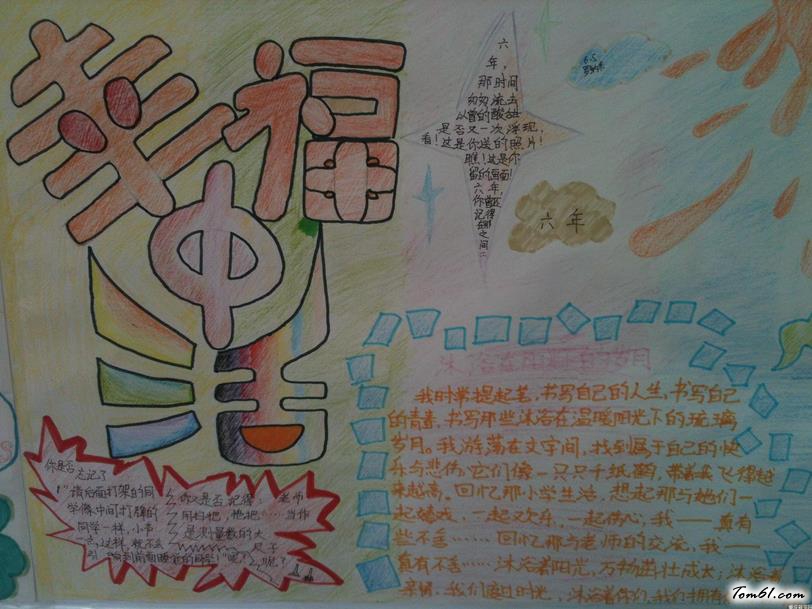 幸福
中
活
六
年，
那时间
匆匆流去
是否又一次浮现，
看！这是你送的照片！
瞧！这是你
留的画面！
六年，
你曾
记得
之
间
六年
沐浴在阳光下的岁月
我时常提起笔，书写自己的人生，书写自己
的青春，书写那些沐浴在温暖阳光下的琉璃
岁月。我游荡在文字间，找到属于自己的快
乐与悲伤。它们像一只只千纸鹤，带着我飞得越
来越高。回忆那小学生活，想起那与她们一
起嬉戏，一起欢乐，一起伤心，我——真有
些不舍……回忆那与老师的交流，我——
真有不舍……沐浴着阳光，万物茁壮成长；沐浴着
亲情，我们度过时光，沐浴着你们，我们拥有
你是否
忘记了
"请后面打架的同
学像中间打牌的
同学一样，小声
一点，这样，就不会
到前面睡觉的同学！"呢？
你又是否记得：老师
用扫把，拖把……当作
是测量数的大
尺子
呢？
Tom61.com